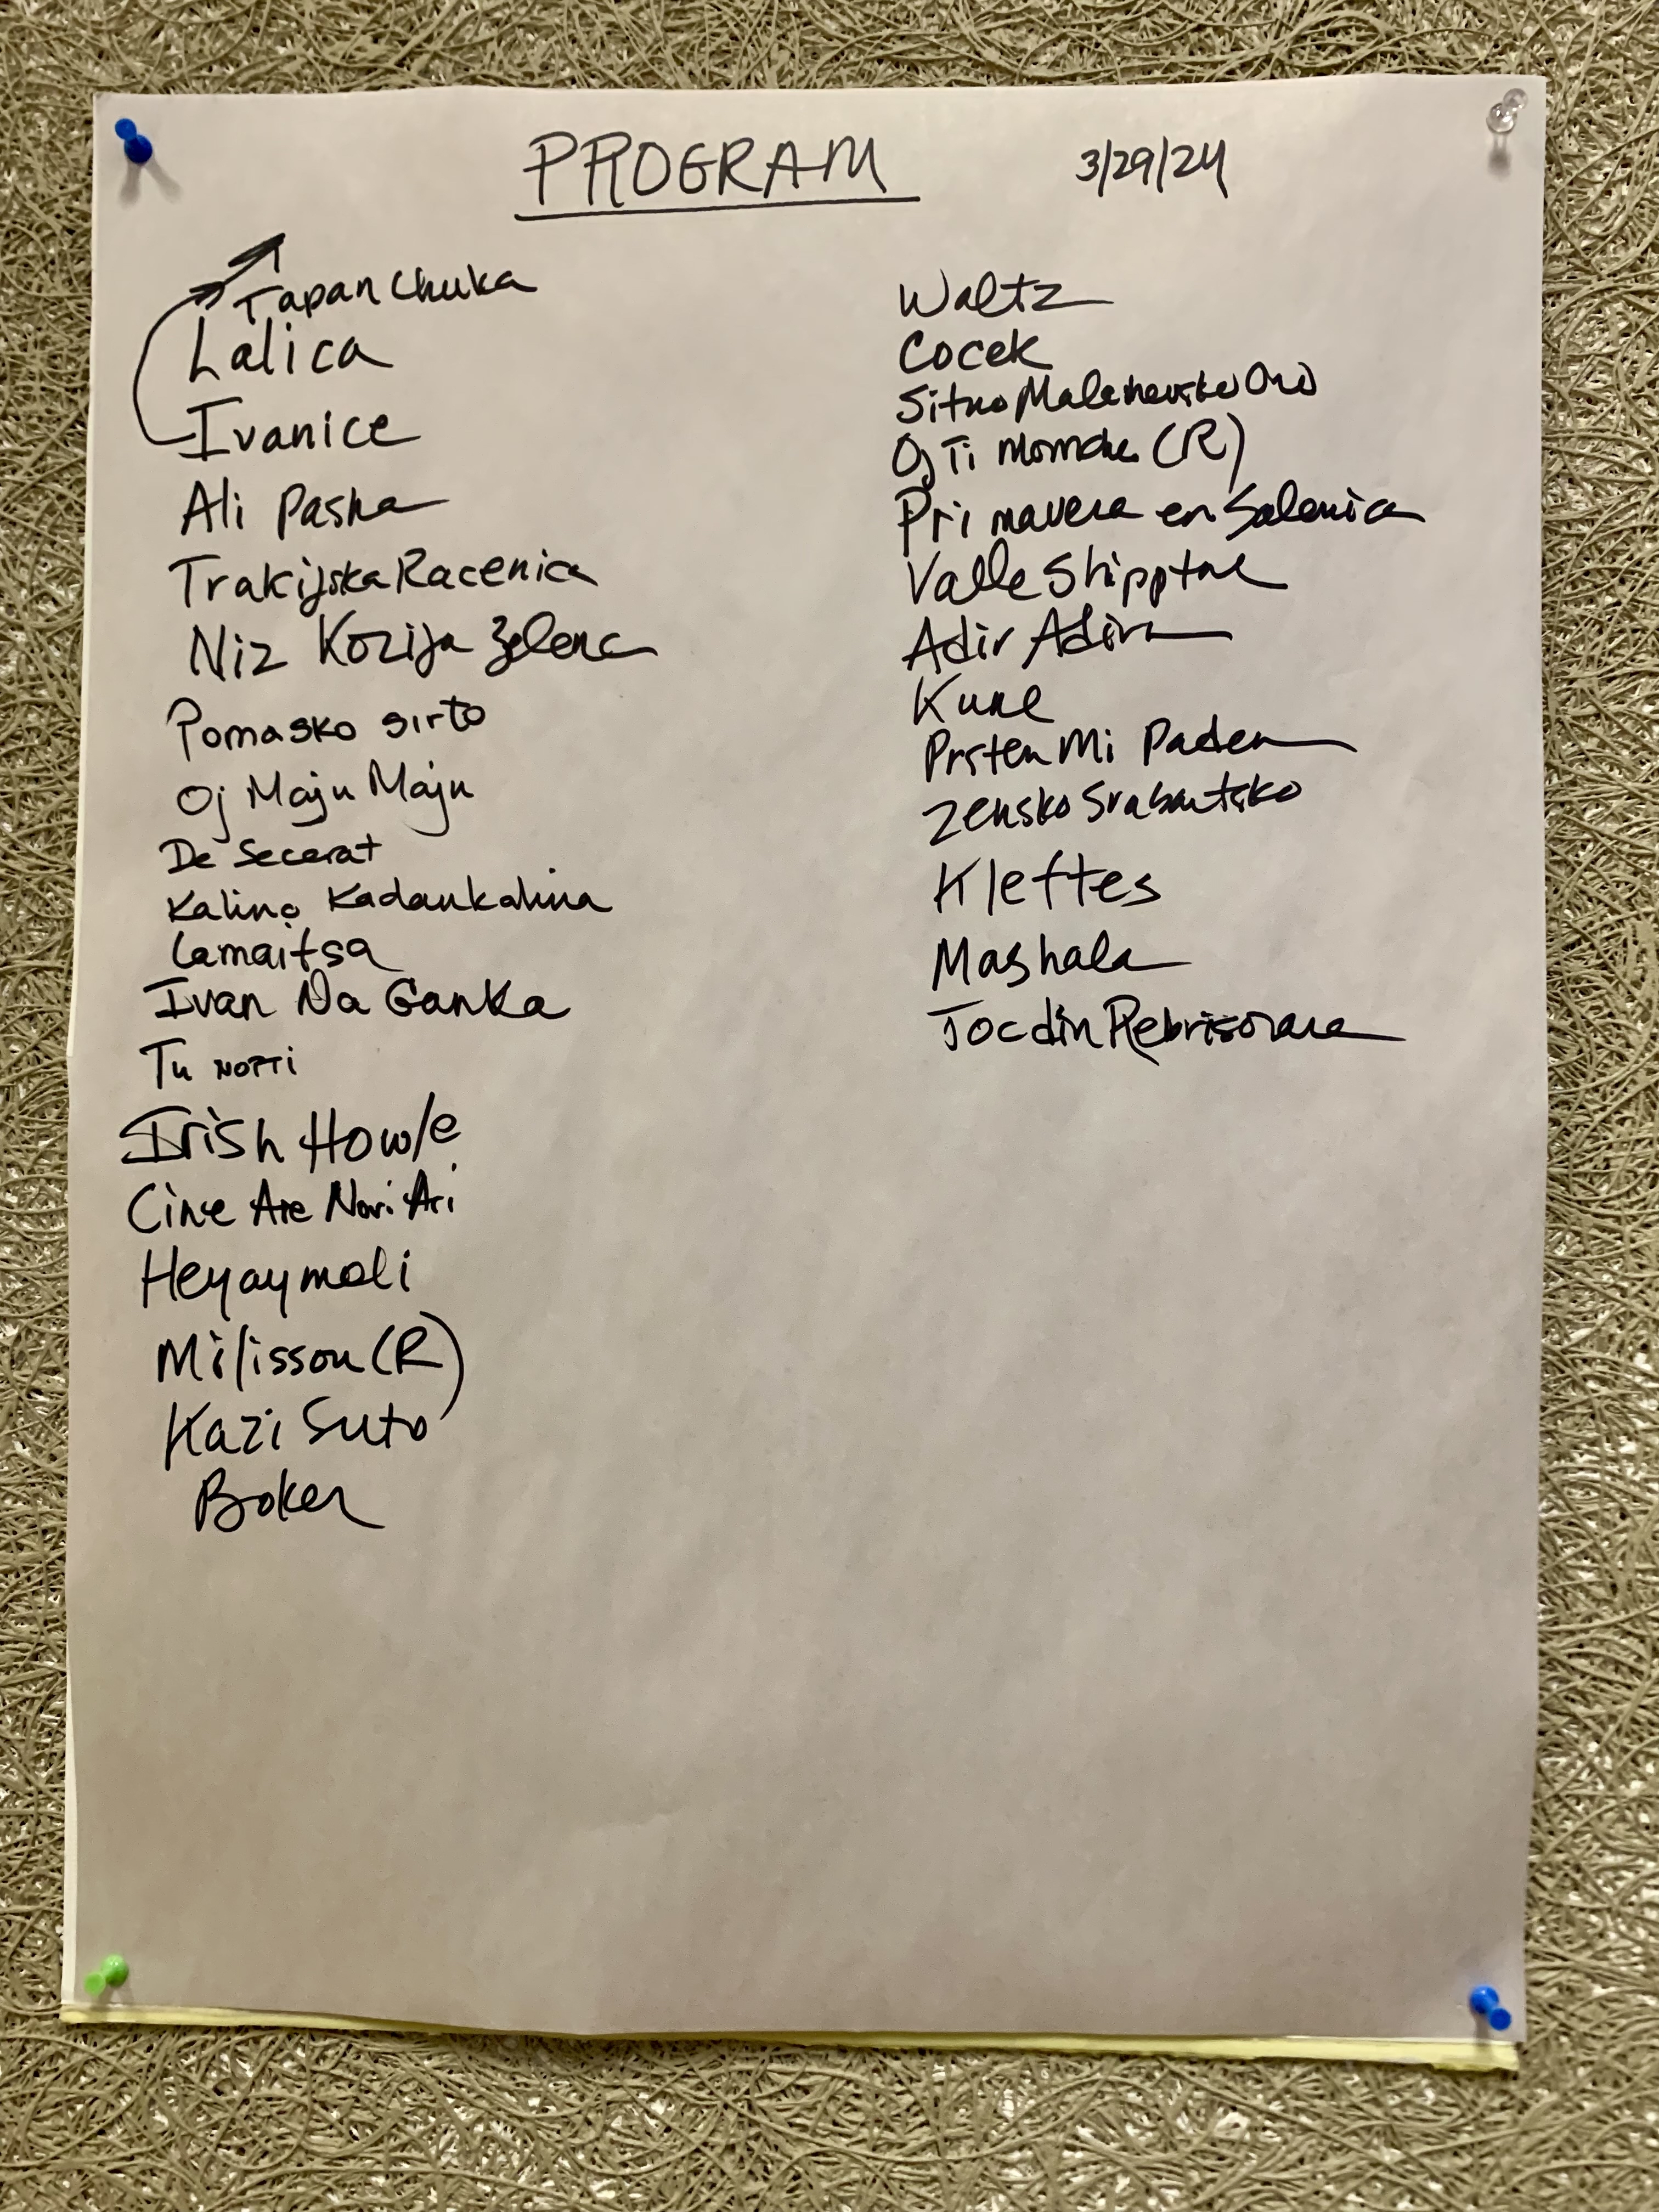 PROGRAM 3/29/24
Tapan Chuka
Lalica
Ivanice
Ali Pasha
Trakijska Racenica
Niz Kozija Zelena
Pomasko sirto
Oj Maju Maju
De Secerat
Kalino Kadankalina
Camaitsa
Ivan Na Ganka
Tu norri
Irish Howle
Cine Are Nori Ari
Heyaymoli
Milisson (R)
Kazi Suto
Boker
Waltz
Cocek
Sitno Malesevsko Oro
Oj Ti momche (R)
Primavera en Salonica
Valle Shipptare
Adir Adirim
Kune
Prsten Mi Paden
Zensko
Kleftes
Mashala
Joc din Rebrisoara